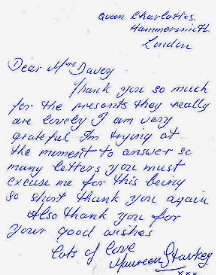 Queen Charlottes
Hammersmith
London
Dear Mrs Davey
Thank you so much
for the presents they really
are lovely I am very
grateful Im trying at
the moment to answer so
many letters you must
excuse me for this being
so short thank you again
Also thank you for
your good wishes
Lots of love
Maureen Starkey
xxx